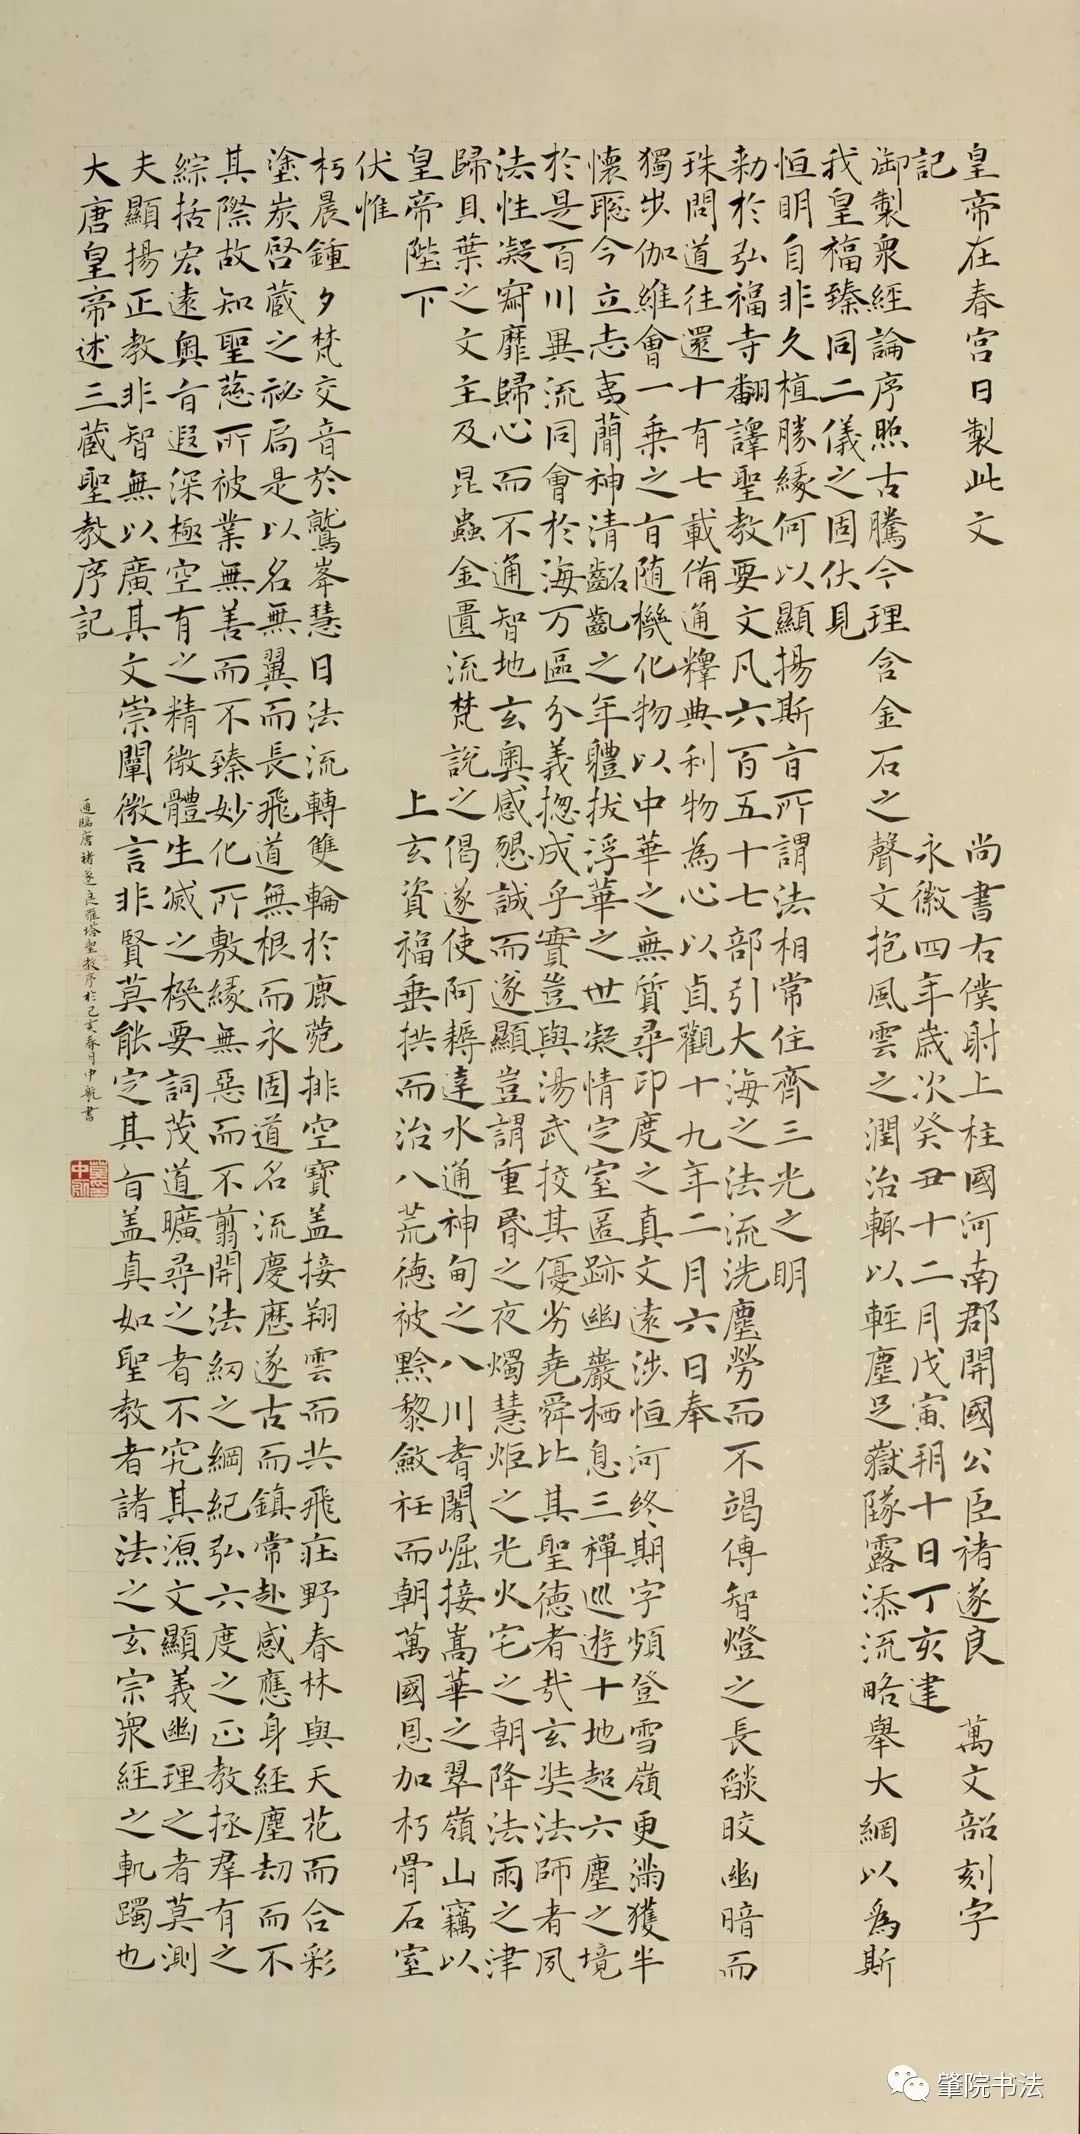 大唐皇帝述三藏聖教序記
夫顯揚正教非智無以廣其文崇闡微言非賢莫能定其旨盖真如聖教者諸法之玄宗衆經之軌躅也
綜括宏遠奧旨遐深極空有之精微體生滅之機要詞茂道曠尋之者不究其源文顯義幽理之者莫測
其際故知聖慈所被業無善而不臻妙化所敷緣無惡而不翦開法網之綱紀弘六度之正教拯羣有之
塗炭啓藏之祕扃是以名無翼而長飛道無根而永固道名流慶歷遂古而鎮常赴感應身經塵劫而不
朽晨鍾夕梵交音於鷲峯慧日法流轉雙輪於鹿菀排空寶盖接翔雲而共飛莊野春林與天花而合彩
伏惟
皇帝陛下 上玄資福垂拱而治八荒德被黔黎斂衽而朝萬國恩加朽骨石室
歸貝葉之文主及昆蟲金匱流梵說之偈遂使阿耨達水通神甸之八川耆闍崛接嵩華之翠嶺山竊以
法性凝寂靡歸心而不通智地玄奧感懇誠而遂顯豈謂重昬之夜燭慧炬之光火宅之朝降法雨之津
於是百川異流同會於海万區分義揔成乎實豈與湯武挍其優劣堯舜比其聖德者哉玄奘法師者夙
懷聰今立志夷蕳神清齠齔之年體拔浮華之世凝情定室匿跡幽巖栖息三禪巡遊十地超六塵之境
獨步伽維會一乘之旨随機化物以中華之無質尋印度之真文遠涉恒河終期字頻登雪嶺更滿獲半
珠問道往還十有七載備通釋典利物為心以貞觀十九年二月六日奉
勑於弘福寺翻譯聖教要文凡六百五十七部引大海之法流洗塵勞而不竭傳智燈之長燄皎幽暗而
恒明自非久植勝緣何以顯揚斯旨所謂法相常住齊三光之明
我皇福臻同二儀之固伏見
御製衆經論序照古騰今理含金石之聲文抱風雲之潤治輒以輕塵足嶽墜露添流略舉大綱以為斯
記 永徽四年歲次癸丑十二月戊寅朔十日丁亥建
皇帝在春宮日製此文 尚書右僕射上柱國河南郡開國公臣褚遂良 萬文韶刻字
通臨唐褚遂良雁塔聖教序於己亥春月中航書
肇院书法